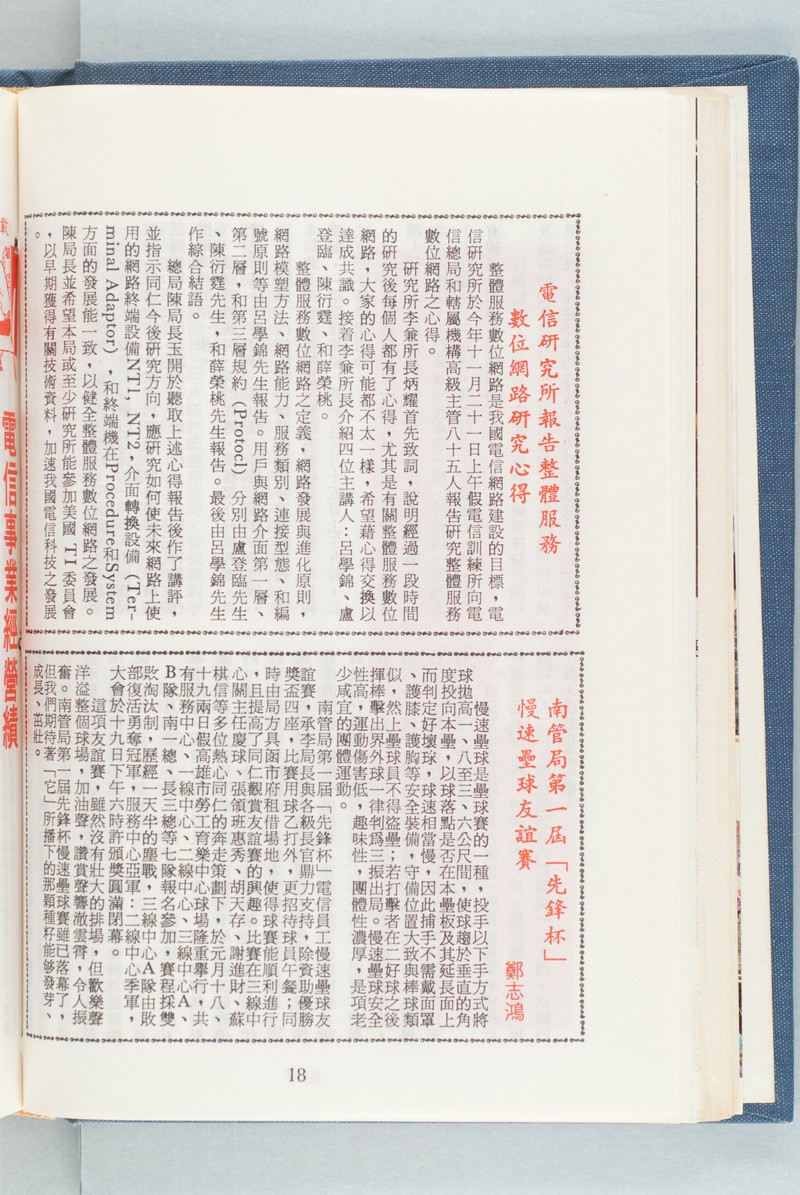 電信研究所報告整體服務
數位網路研究心得
整體服務數位網路是我國電信網路建設的目標，電
信研究所於今年十一月二十一日上午假電信訓練所向電
信總局和轄屬機構高級主管八十五人報告研究整體服務
數位網路之心得。
研究所李兼所長炳耀首先致詞，說明經過一段時間
的研究後每個人都有了心得，尤其是有關整體服務數位
網路，大家的心得可能都不太一樣，希望藉心得交換以
達成共識。接着李兼所長介紹四位主講人：呂學錦、盧
登臨、陳衍霆、和薛榮桃。
整體服務數位網路之定義，網路發展與進化原則，
網路模塑方法、網路能力、服務類別、連接型態、和編
號原則等由呂學錦先生報告。用戶與網路介面第一層、
第二層，和第三層規約（Protocl）分別由盧登臨先生
、陳衍霆先生，和薛榮桃先生報告。最後由呂學錦先生
作綜合結語。
總局陳局長玉開於聽取上述心得報告後作了講評，
並指示同仁今後研究方向，應研究如何使未來網路上使
用的網路終端設備NT1，NT2，介面轉換設備（Ter-
minal Adaptor），和終端機在Procedure和System
方面的發展能一致，以健全整體服務數位網路之發展。
陳局長並希望本局或至少研究所能參加美國 TI 委員會
，以早期獲得有關技術資料，加速我國電信科技之發展
。
南管局第一屆「先鋒杯」
慢速壘球友誼賽
鄭志鴻
慢速壘球是壘球賽的一種，投手以下手方式將
球拋高一、八至三、六公尺間，使球趨於垂直的角
度投向本壘，以球落點是否在本壘板及其延長面上
而判定好壞球，球速相當慢，因此捕手不需戴面罩
、護膝、護胸等安全裝備，守備位置大致與棒球類
似，然上壘球員不得盜壘；若打擊者在二好球之後
揮棒擊出界外球一律判爲三振出局。慢速壘球安全
性高，運動傷害低，趣味性，團體性濃厚，是項老
少咸宜的團體運動。
南管局第一屆「先鋒杯」電信員工慢速壘球友
誼賽，承李局長與各級長官鼎力支持，除資助優勝
獎盃四座，比賽用球乙打外，更招待球員午餐；同
時由局方具函市府租借場地，使得球賽能順利進行
，且提高了同仁觀賞友誼賽的興趣。比賽在三線中
心關主任慶球、張領班惠秀、胡天存、謝進財、蘇
棋信等多位熱心同仁的奔走策劃下，於元月十八、
十九兩日假高雄市勞工育樂中心球場隆重舉行，共
有服務中心、一線中心、二線中心、三線中心A、
B隊、南一總、長三總等七隊報名參加，賽程採雙
敗淘汰制，歷經一天半的塵戰，三線中心A隊由敗
部復活勇奪冠軍，服務中心亞軍：二線中心季軍，
大會於十九日下午六時許頒獎圓滿閉幕。
這項友誼賽，雖然沒有壯大的排場，但歡樂聲
洋溢整個球場，加油聲，讚賞聲響澈雲霄，令人振
奮。南管局第一屆先鋒杯慢速壘球賽雖已落幕了，
但我們期待著「它」所播下的那顆種籽能够發芽、
成長、茁壯。
18
電信事業經營績